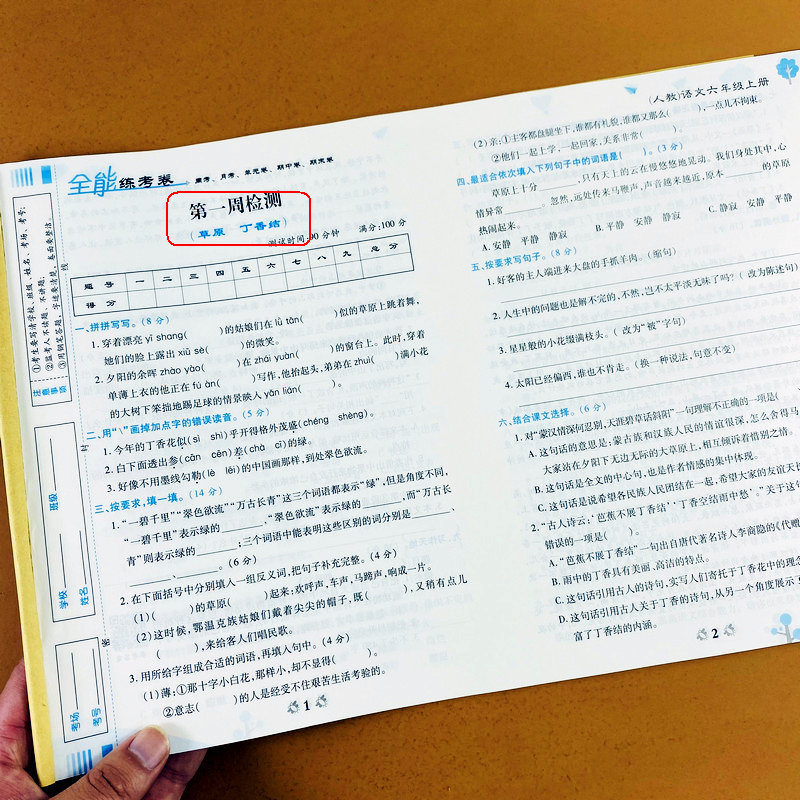 全能练考卷 周考、月考、单元卷、期中卷、期末卷
第一周检测
(草原 丁香结)
测试时间:90分钟 满分:100分
题号 一 二 三 四 五 六 七 八 九 总分
得分
一、拼拼写写。(8分)
1.穿着漂亮yī shang( )的姑娘们在lǜ tǎn( )似的草原上跳着舞,
她们的脸上露出xiū sè( )的微笑。
2.夕阳的余晖zhào yào( )在zhái yuàn( )的窗台上。此时,穿着
单薄上衣的他正在fú àn( )写作,他抬起头,弟弟在zhuī( )满小花
的大树下笨拙地踢足球的情景映入yǎn lián( )。
二、用“\”画掉加点字的错误读音。(5分)
1.今年的丁香花似(sì shì)乎开得格外茂盛(chéng shèng)。
2.白下面透出参(cān cēn)差(chà cī)的绿。
3.好像不用墨线勾勒(lè lēi)的中国画那样,到处翠色欲流。
三、按要求,填一填。(14分)
1.“一碧千里”“翠色欲流”“万古长青”这三个词语都表示“绿”,但是角度不同,
“一碧千里”表示绿的______,“翠色欲流”表示绿的______,而“万古长
青”则表示绿的______;三个词语中能表明这些区别的词分别是______、
______、______。(6分)
2.在下面括号中分别填入一组反义词,把句子补充完整。(4分)
(1)( )的草原( )起来;欢呼声,车声,马蹄声,响成一片。
(2)这时候,鄂温克族姑娘们戴着尖尖的帽子,既( ),又稍有点儿
( ),来给客人们唱民歌。
3.用所给字组成合适的词语,再填入句中。(4分)
(1)薄:①那十字小白花,那样小,却不显得( )。
②意志( )的人是经受不住艰苦生活考验的。
1
注意事项
①考生要写清学校、班级、姓名、考场、考号;
②监考人不读题、不讲题;
③用钢笔答题,字迹要清楚,卷面要整洁。
学校
班级
姓名
考场
考号
密
封
线
(人教)语文六年级上册
(2)亲:①主客都盘腿坐下,谁都有礼貌,谁都又那么( ),一点儿不拘束。
②他们一起上学,一起回家,关系非常( )。
四、最适合依次填入下列句子中的词语是( )。(3分)
草原上十分______,只有天上的云在慢悠悠地晃动。我们身处其中,心
情异常______。忽然,远处传来马鞭声,声音越来越近,原本______的草原
热闹起来。
A.安静 平静 静寂
B.平静 安静 静寂
C.静寂 安静 平静
五、按要求写句子。(8分)
1.好客的主人端进来大盘的手抓羊肉。(缩句)
2.人生中的问题也是解不完的,不然,岂不太平淡无味了吗?(改为陈述句)
3.星星般的小花缀满枝头。(改为“被”字句)
4.太阳已经偏西,谁也不肯走。(换一种说法,句意不变)
六、结合课文选择。(6分)
1.对“蒙汉情深何忍别,天涯碧草话斜阳”一句理解不正确的一项是(
A.这句话的意思是:蒙古族和汉族人民的情谊很深,怎么舍得马
大家站在夕阳下无边无际的大草原上,相互倾诉着惜别之情。
B.这句话是全文的中心句,也是作者情感的集中体现。
C.这句话是说希望各民族人民团结在一起,希望大家的友谊天长
2.“古人诗云:‘芭蕉不展丁香结’‘丁香空结雨中愁’。”关于这句
错误的一项是( )。
A.“芭蕉不展丁香结”一句出自唐代著名诗人李商隐的《代赠
B.雨中的丁香具有美丽、高洁的特点。
C.这句话引用古人的诗句,实写人们寄托于丁香花中的理念
D.这句话引用古人关于丁香的诗句,从另一个角度展示
富了丁香结的内涵。
2